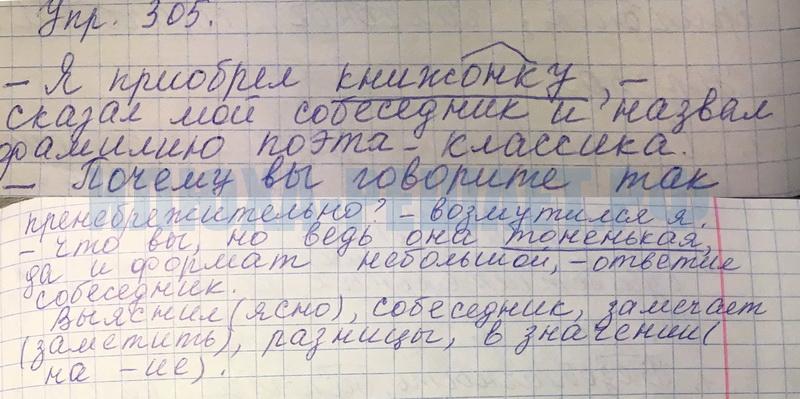 Упр. 305.
– Я приобрел книжонку, –
сказал мой собеседник и назвал
фамилию поэта – классика.
– Почему вы говорите так
пренебрежительно? – возмутился я.
– что вы, но ведь она тоненькая,
да и формат небольшой, – ответил
собеседник.
Выяснил (ясно), собеседник, замечает
(заметить), разницы, в значении(
на -ие).